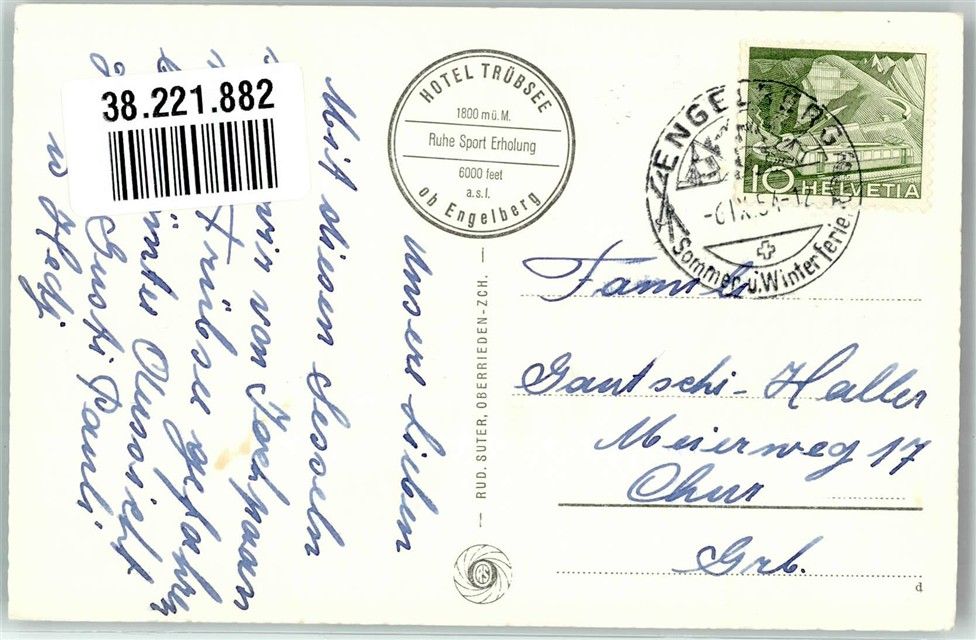 38.221.882
HOTEL TRÜBSEE
1800 m ü. M.
Ruhe Sport Erholung
6000 feet
a.s.l.
ob Engelberg
ENGELBERG
-6.IX.54-12
Sommer u. Winterferien
10 HELVETIA
Unsere Lieben
Mit diesen Sesseln
wir von Jochpass
Trübsee gefahren
Aussicht
Gusti Pauli
u Hedj
RUD. SUTER, OBERRIEDEN-ZCH.
Familie
Gautschi-Haller
Meierweg 17
Chur
Grb.
d